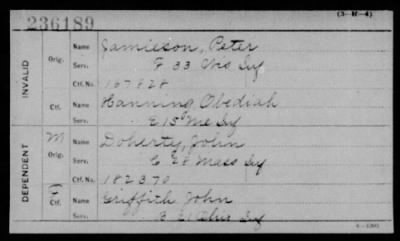 (3-H-4)
236189
INVALID
Orig. Name Jamieson, Peter
Serv. F 33 Wis Inf
Ctf. No. 167828
Ctf. Name Hanning Obediah
Serv. E 15 Me Inf
DEPENDENT
M Orig. Name Doherty, John
Serv. C 28 Mass Inf
Ctf. No. 182370
Ctf. Name Griffith John
Serv. B Ohio Inf